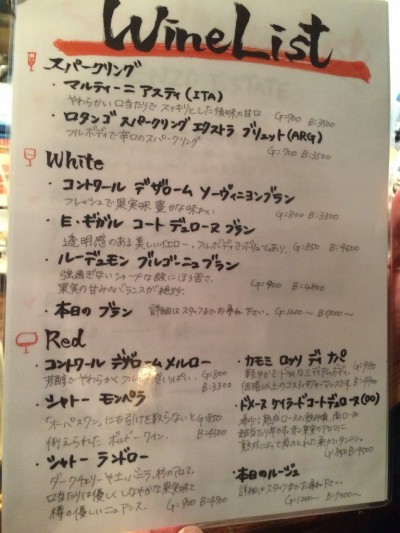 WineList
スパークリング
・マルティーニ アスティ (ITA)
やわらかい口あたりで スッキリとした後味の甘口 G:900 B:3500
・ロタンゴ スパークリング エクストラ ブリュット(ARG)
フルボディで辛口のスパークリング G:700 B:3500
White
・コントワール デザローム ソーヴィニヨンブラン
フレッシュで果実味豊かな味わい G:800 B:3300
・E・ギガル コート デュローヌ ブラン
透明感のある美しいイエロー・フルボディでボリュームあり。 G:850 B:4500
・ルーデュモン ブルゴーニュブラン
強過ぎないシャープな酸にほろ苦さ。
果実の甘みのバランスが絶妙。 G:900 B:4800
・本日の ブラン 詳細はスタッフまでお尋ね下さい。 G:1200~ B:7000~
Red
・コントワール デザローム メルロー
芳醇でやわらかく G:800
B:3300
・シャトー モンペラ
「オーパスワン」にも引けを取らないと G:850
例えられた ボルドーワイン。 B:4500
・シャトー ランドロー
ダークチェリーやスパイス、バニラ、杉のアロマ。
口当たりは優しく しなやかな果実味と
樽の優しいニュアンス。 G:900 B:4900
・カモミ ロッソ ディ ナパ
G:950
価格以上のコストパフォーマンスです。
・ドメーヌ ケイラード コートデュローヌ(OO)
G:850
・本日のルージュ
詳細はスタッフまでお尋ね下さい。
G:1200~ B:7000~